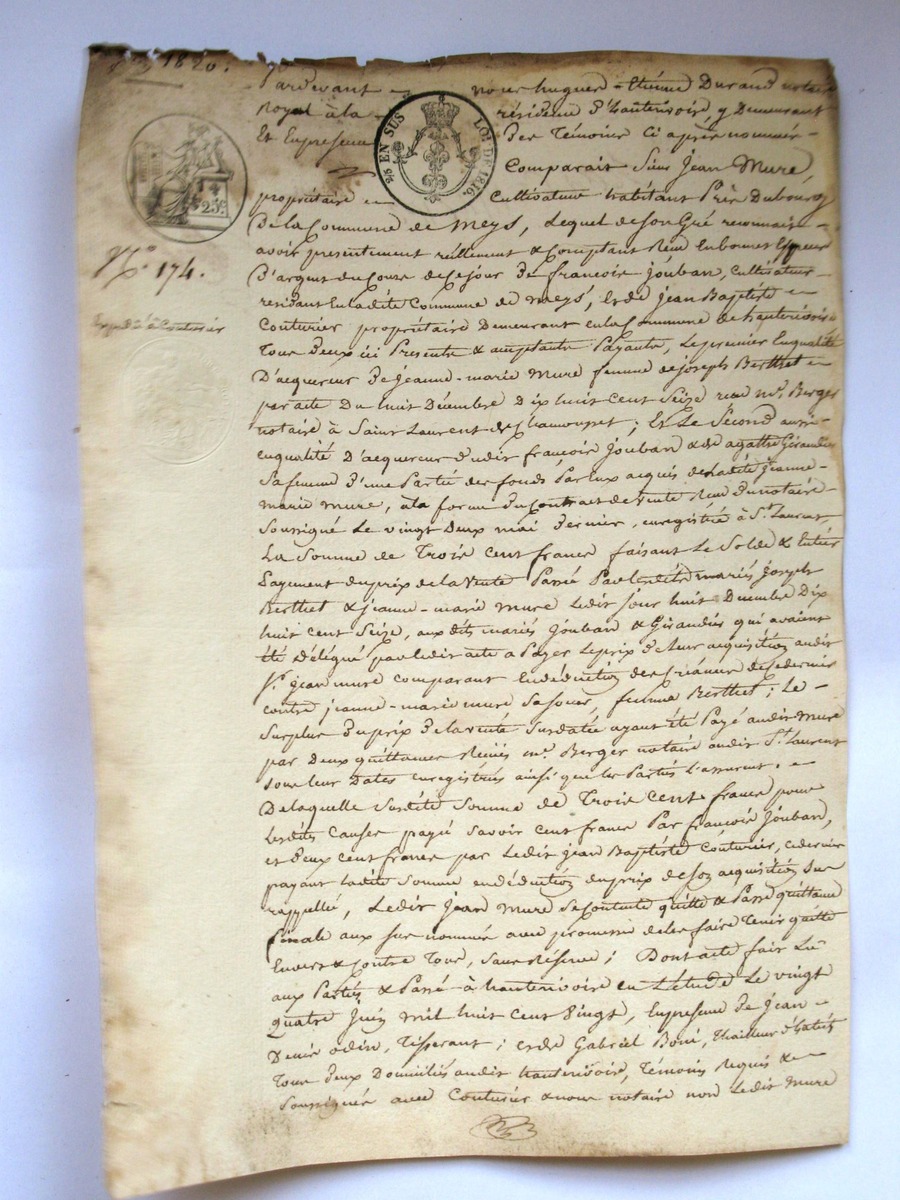 1820.
Pardevant nous hugues-Etienne Durand notaire
Royal à la résidence d'hauterivoire, y Demeurant
Et En presence Des Témoins Ci après nommés
25 EN SUS LOI DE 1816.
25c
Comparait Sieur Jean Mure,
propriétaire Cultivateur habitant Près Dubourg
De la Commune de Meys, Lequel de Son Gré reconnait
avoir présentement réellement & Comptant Reçu En bonnes Espèces
N.° 174.
D'argent du Cours de Ce jour De francois Jouban, Cultivateur
résidant En ladite Commune de Meys, & de Jean Baptiste
Expéd. à Couturier
Couturier propriétaire Demeurant en la Commune de hauterivoire
Tous Deux ici Presents & acceptants Payants, Le premier En qualité
D'acquereur De Jeanne-marie Mure femme de joseph Berthet
par acte Du huit Décembre Dix huit Cent Seize reçu me. Berger
notaire à Saint Laurent de Chamousset; Et Le Second aussi
en qualité D'acquereur Dudit françois Jouban & de agathe Girandier
Sa femme D'une Partie des fonds Par Eux acquis de Ladite Jeanne-
marie mure, à la forme Du Contract de Vente Reçu Du notaire
Soussigné Le vingt Deux mai Dernier, enregistré à St. Laurent,
La Somme de Trois Cent francs faisant Le Solde & Entier
Payement du prix de la Vente Passé Par Lesdits mariés Joseph
Berthet & Jeanne-marie Mure Ledit Jour huit Decembre Dix
huit Cent Seize, aux dits mariés Jouban & Girandier qui avaient
été délégué par ledit acte a Payer Le prix De leur acquisition audit
Sr. jean mure comparant En déduction des Créances de Ce dernier
contre jeanne-marie mure Sa Soeur, femme Berthet; Le
Surplus Du prix De la vente Susdatée ayant été Payé audit Mure
par Deux quittances Reçues me. Berger notaire audit St. Laurent
Sous leur Dates enregistrées ainsi que les Parties L'assurent.
De laquelle Susdite Somme de Trois Cent francs pour
Lesdites Causes payée Savoir Cent francs Par françois Jouban,
et Deux Cent francs par Ledit Jean Baptiste Couturier, ce dernier
payant ladite Somme en déduction du prix de Son acquisition Sus
rappellée, Ledit Jean Mure Se Contente quitte & Passe quittance
finale aux Sus nommés avec promesse de les faire Tenir quitte
Envers & Contre Tous, Sans Réserve; Dont acte fait Lu
aux Parties & Passé à hauterivoire en L'étude Le vingt
quatre Juin Mil huit Cent Vingt, En presence De Jean
Denis odin, Tisserant; & de Gabriel Boni, Thailleur d'habits
Tous Deux Domiciliés audit hauterivoire, Témoins Requis &
Soussignés avec Couturier & nous notaire non Ledit Mure